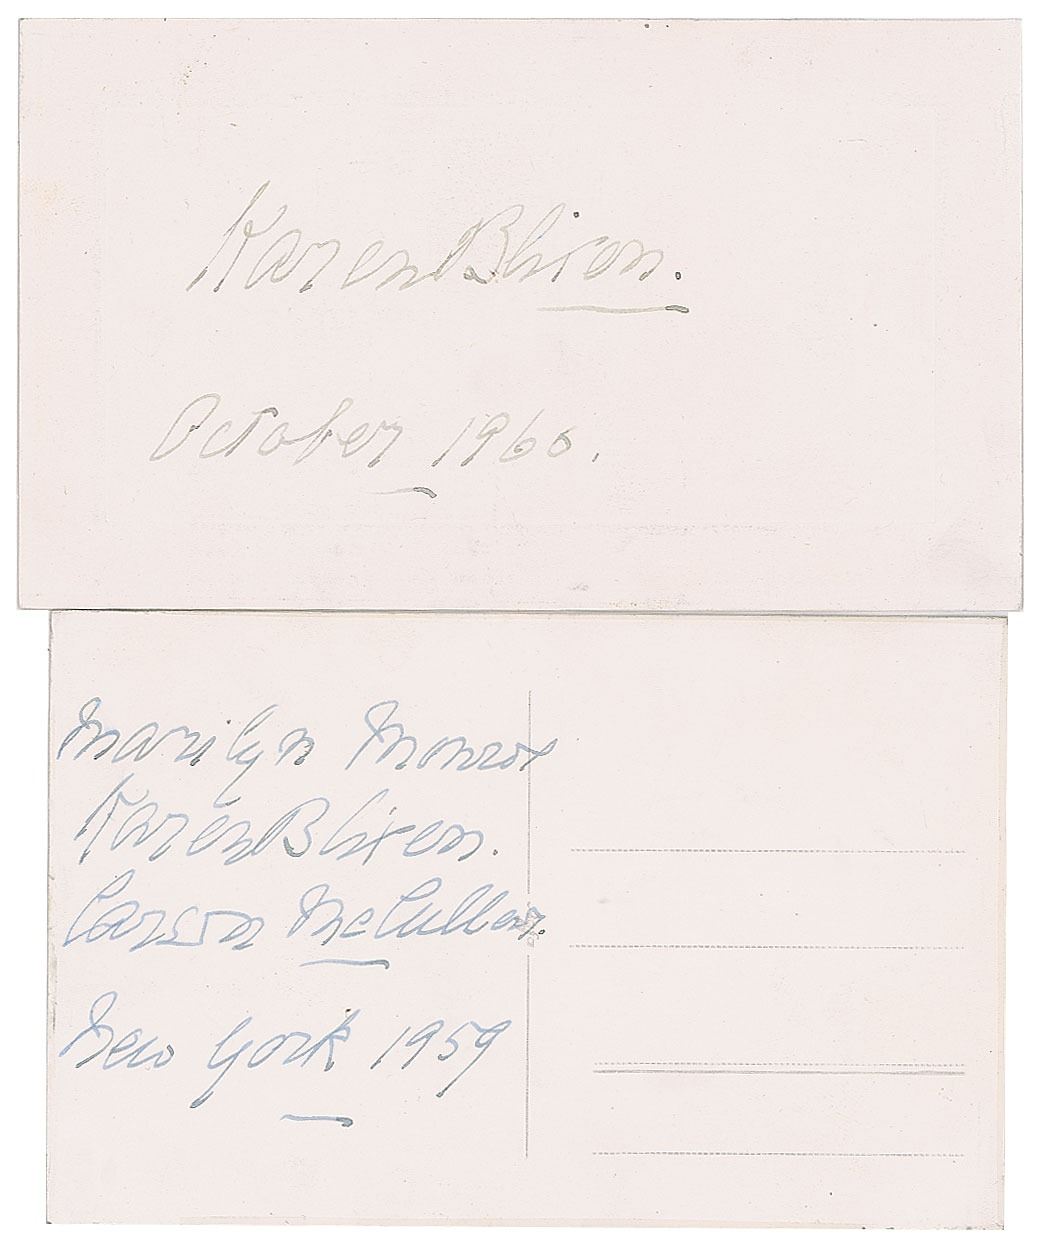 Karen Blixen.
October 1960.
Marilyn Monroe
Karen Blixen.
Carson McCullers.
New York 1959